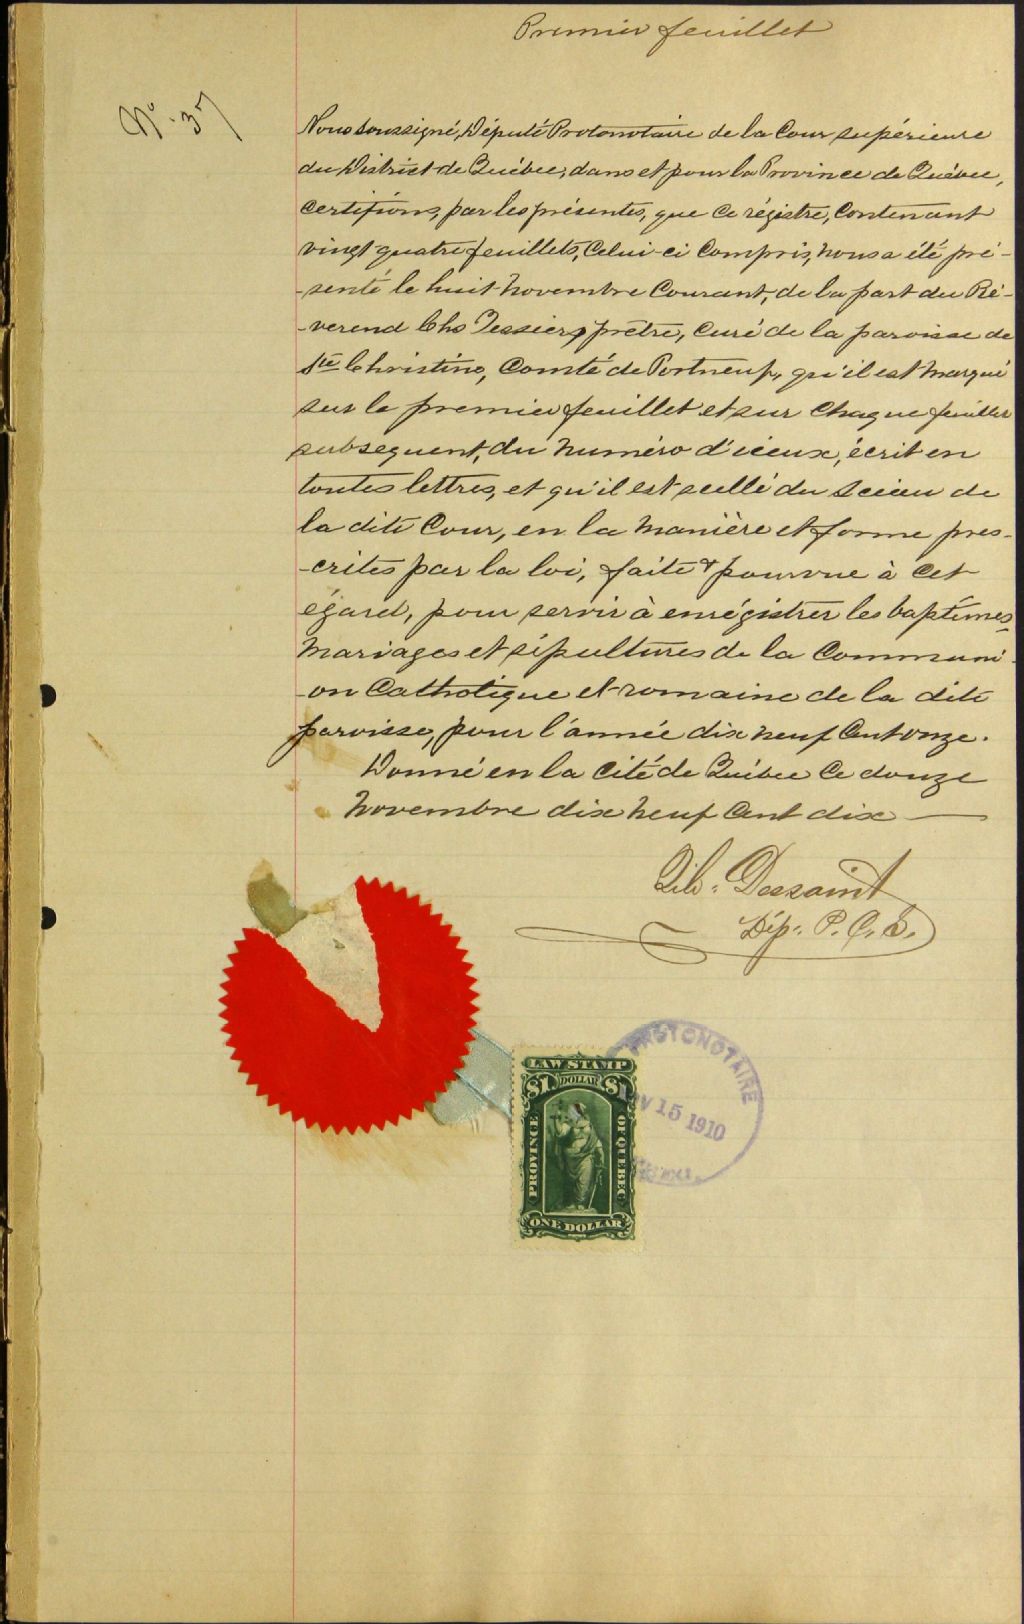 Premier feuillet
No. 37
Nous soussigné, Député Protonotaire de la Cour supérieure
du District de Québec, dans et pour la Province de Québec,
certifions, par les présentes, que ce régistre, contenant
vingt quatre feuillets, celui-ci compris, nous a été pré-
-senté le huit novembre courant, de la part du Ré-
-verend Chs Tessier, prêtre, curé de la paroisse de
Ste Christine, Comté de Portneuf, qu'il est marqué
sur le premier feuillet et sur chaque feuillet
subsequent, du numéro d'iceux, écrit en
toutes lettres, et qu'il est scellé du sceau de
la dite Cour, en la manière et forme pres-
-crites par la loi, faite & pourvue à cet
égard, pour servir à enrégistrer les baptêmes,
mariages et sépultures de la Communi-
-on Catholique et romaine de la dite
paroisse, pour l'année dix neuf cent onze.
Donné en la cité de Québec ce douze
novembre dix neuf cent dix
Dessaint
Dép. P. C. S.
PROTONOTAIRE
NOV 15 1910
LAW STAMP
$1 DOLLAR $1
PROVINCE OF QUEBEC
ONE DOLLAR